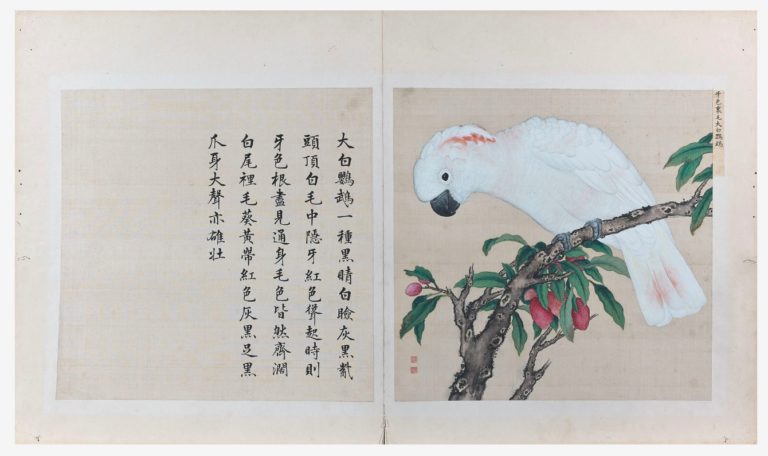 牙色裏毛大白鸚鵡
大白鸚鵡一種黑睛白瞼灰黑觜
頭頂白毛中隱牙紅色聳起時則
牙色根盡見通身毛色皆然齊濶
白尾裡毛葵黃帶紅色灰黑足黑
爪身大聲亦雄壯